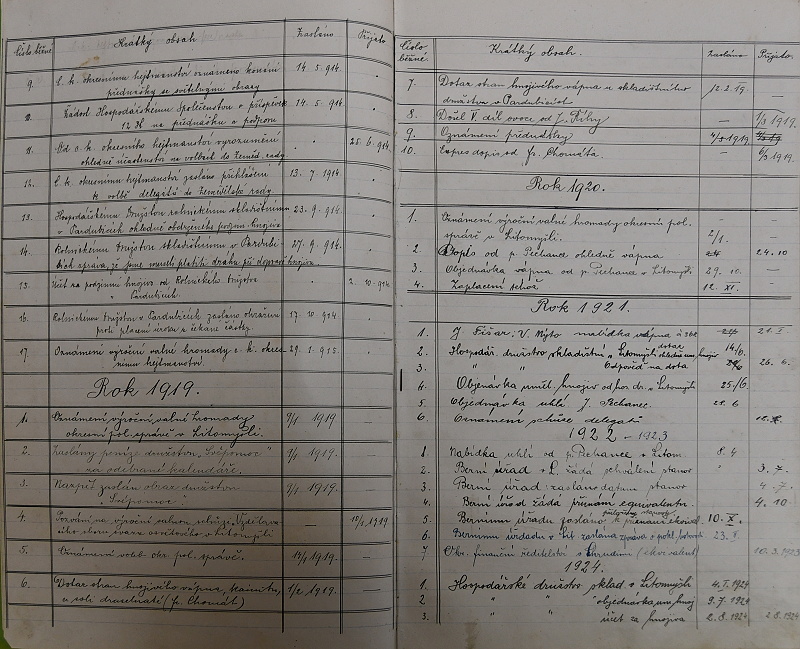 Číslo běžné Krátký obsah Zasláno Přijato
9. C. k. okresnímu hejtmanství oznámeno konání 14. 5. 914.
přednášky se světelnými obrazy
Žádost Hospodářskému Společenstvu o příspěvek 14. 5. 914.
12 K na přednášku a podporu
11. Od c. k. okresního hejtmanství vyrozumění 25. 6. 914.
ohledně účastenství ve volbách do zeměd. rady
12. C. k. okresnímu hejtmanství zasláno přihlášení 13. 7. 1914.
k volbě delegátů do Zemědělské rady
13. Hospodářskému Družstvu rolnickému skladištnímu 23. 9. 914.
v Pardubicích ohledně obdrženého hnojiva
14. Rolnickému Družstvu skladištnímu v Pardubi- 27. 9. 914.
cích zpráva, že jsme museli platiti dráhu při dopravě hnojiva
15. Účet na podzimní hnojivo od Rolnického Družstva 2. 10. 914.
v Pardubicích.
16. Rolnickému Družstvu v Pardubicích zasláno ohrážení 17. 10. 914.
proti placení úroku z čekání částky.
17 Oznámení výroční valné hromady c. k. okres- 29. 1. 915.
nímu hejtmanství.
Rok 1919.
1. Oznámení výroční valné hromady 9/1 1919
okresní pol. správě v Litomyšli.
2. Zaslány peníze družstvu "Svépomoc" 9/1 1919.
za odebrané kalendáře.
3. Rozpočet zaslán obraz družstvu 9/1 1919.
"Svépomoc"
4. Pozvání na výroční valnou schůzi Vzdělava- — 10/1 1919
cího sboru osvětového v Litomyšli
5. Oznámení voleb okr. pol. správě. 12/1 1919. —
6. Dotaz stran hnojivého vápna, kainitu, 1/2 1919. —
a soli draselnaté (fr. Chomát)
Číslo běžné. Krátký obsah. Zasláno Přijato.
7. Dotaz stran hnojivého vápna u skladištního 12. 2. 19. —
družstva v Pardubicích
8. Došel V. díl ovoce od J. Říhy — 1/3 1919.
9. Oznámení přednášky 4/3 1919
10. Expres dopis od Fr. Chomáta. — 6/3 1919
Rok 1920.
1. Oznámení výroční valné hromady okresní pol. — —
správě v Litomyšli. 2/1.
2 Dopis od p. Pechance ohledně vápna 24. 10
3. Objednávka vápna od p. Pechance v Litomyšli 29. 10. —
4. Zaplacení téhož 12. XI. —
Rok 1921.
1. J. Fišar: V. Mýto nabídka vápna 21. I.
2. Hospodář. družstvo skladištní v Litomyšli dotaz ohledně um. hnojiv 14/6.
3. " " Odpověď na dotaz 26. 6.
4. Objenávka uměl. hnojiv od hos. dr. v Litomyšli 25/6
5. Objednávka uhlí J. Pechanec. 28. 6
6. Oznámení schůze delegátů
1922 – 1923
1 Nabídka uhlí od p. Pechance v Litom. 8. 4
2. Berní úřad v L. žádá schválení stanov " 3. 7.
3. Berní úřad zaslán datum stanov 4. 7.
4. Berní úřad žádá přiznání equivalentu. 4. 10
5 Bernímu úřadu zasláno k přiznání ekvival. 10. X.
6. Bernímu úřadu v Lit. zaslána zpráva o 23. X
7 Okr. finanční ředitelství v Chrudimi (ekvivalent) 10. 3. 1923
1924
1. Hospodářské družstvo sklad. v Litomyšli 4. I. 1924
2. " " objednávka um. hnoj 9. 7. 1924
3. " " účet za hnojiva 2. 8. 1924 2. 8. 1924